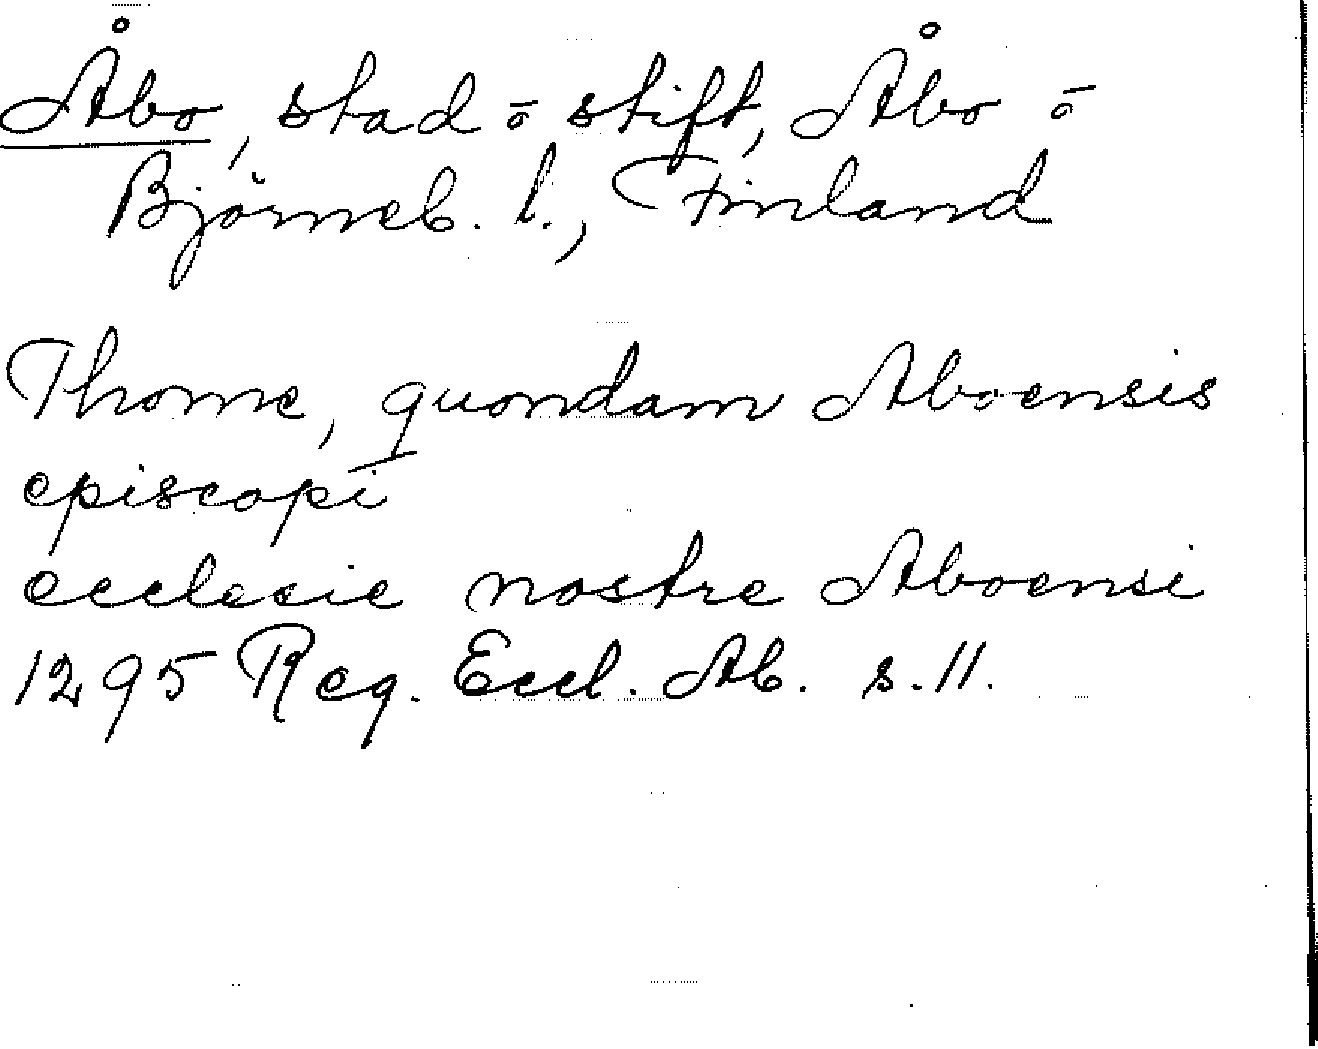 Åbo, stad o stift, Åbo o
Björneb. l., Finland
Thome, quondam Aboensis
episcopi
ecclesie nostre Aboensi
1295 Reg. Eccl. Ab. s. 11.